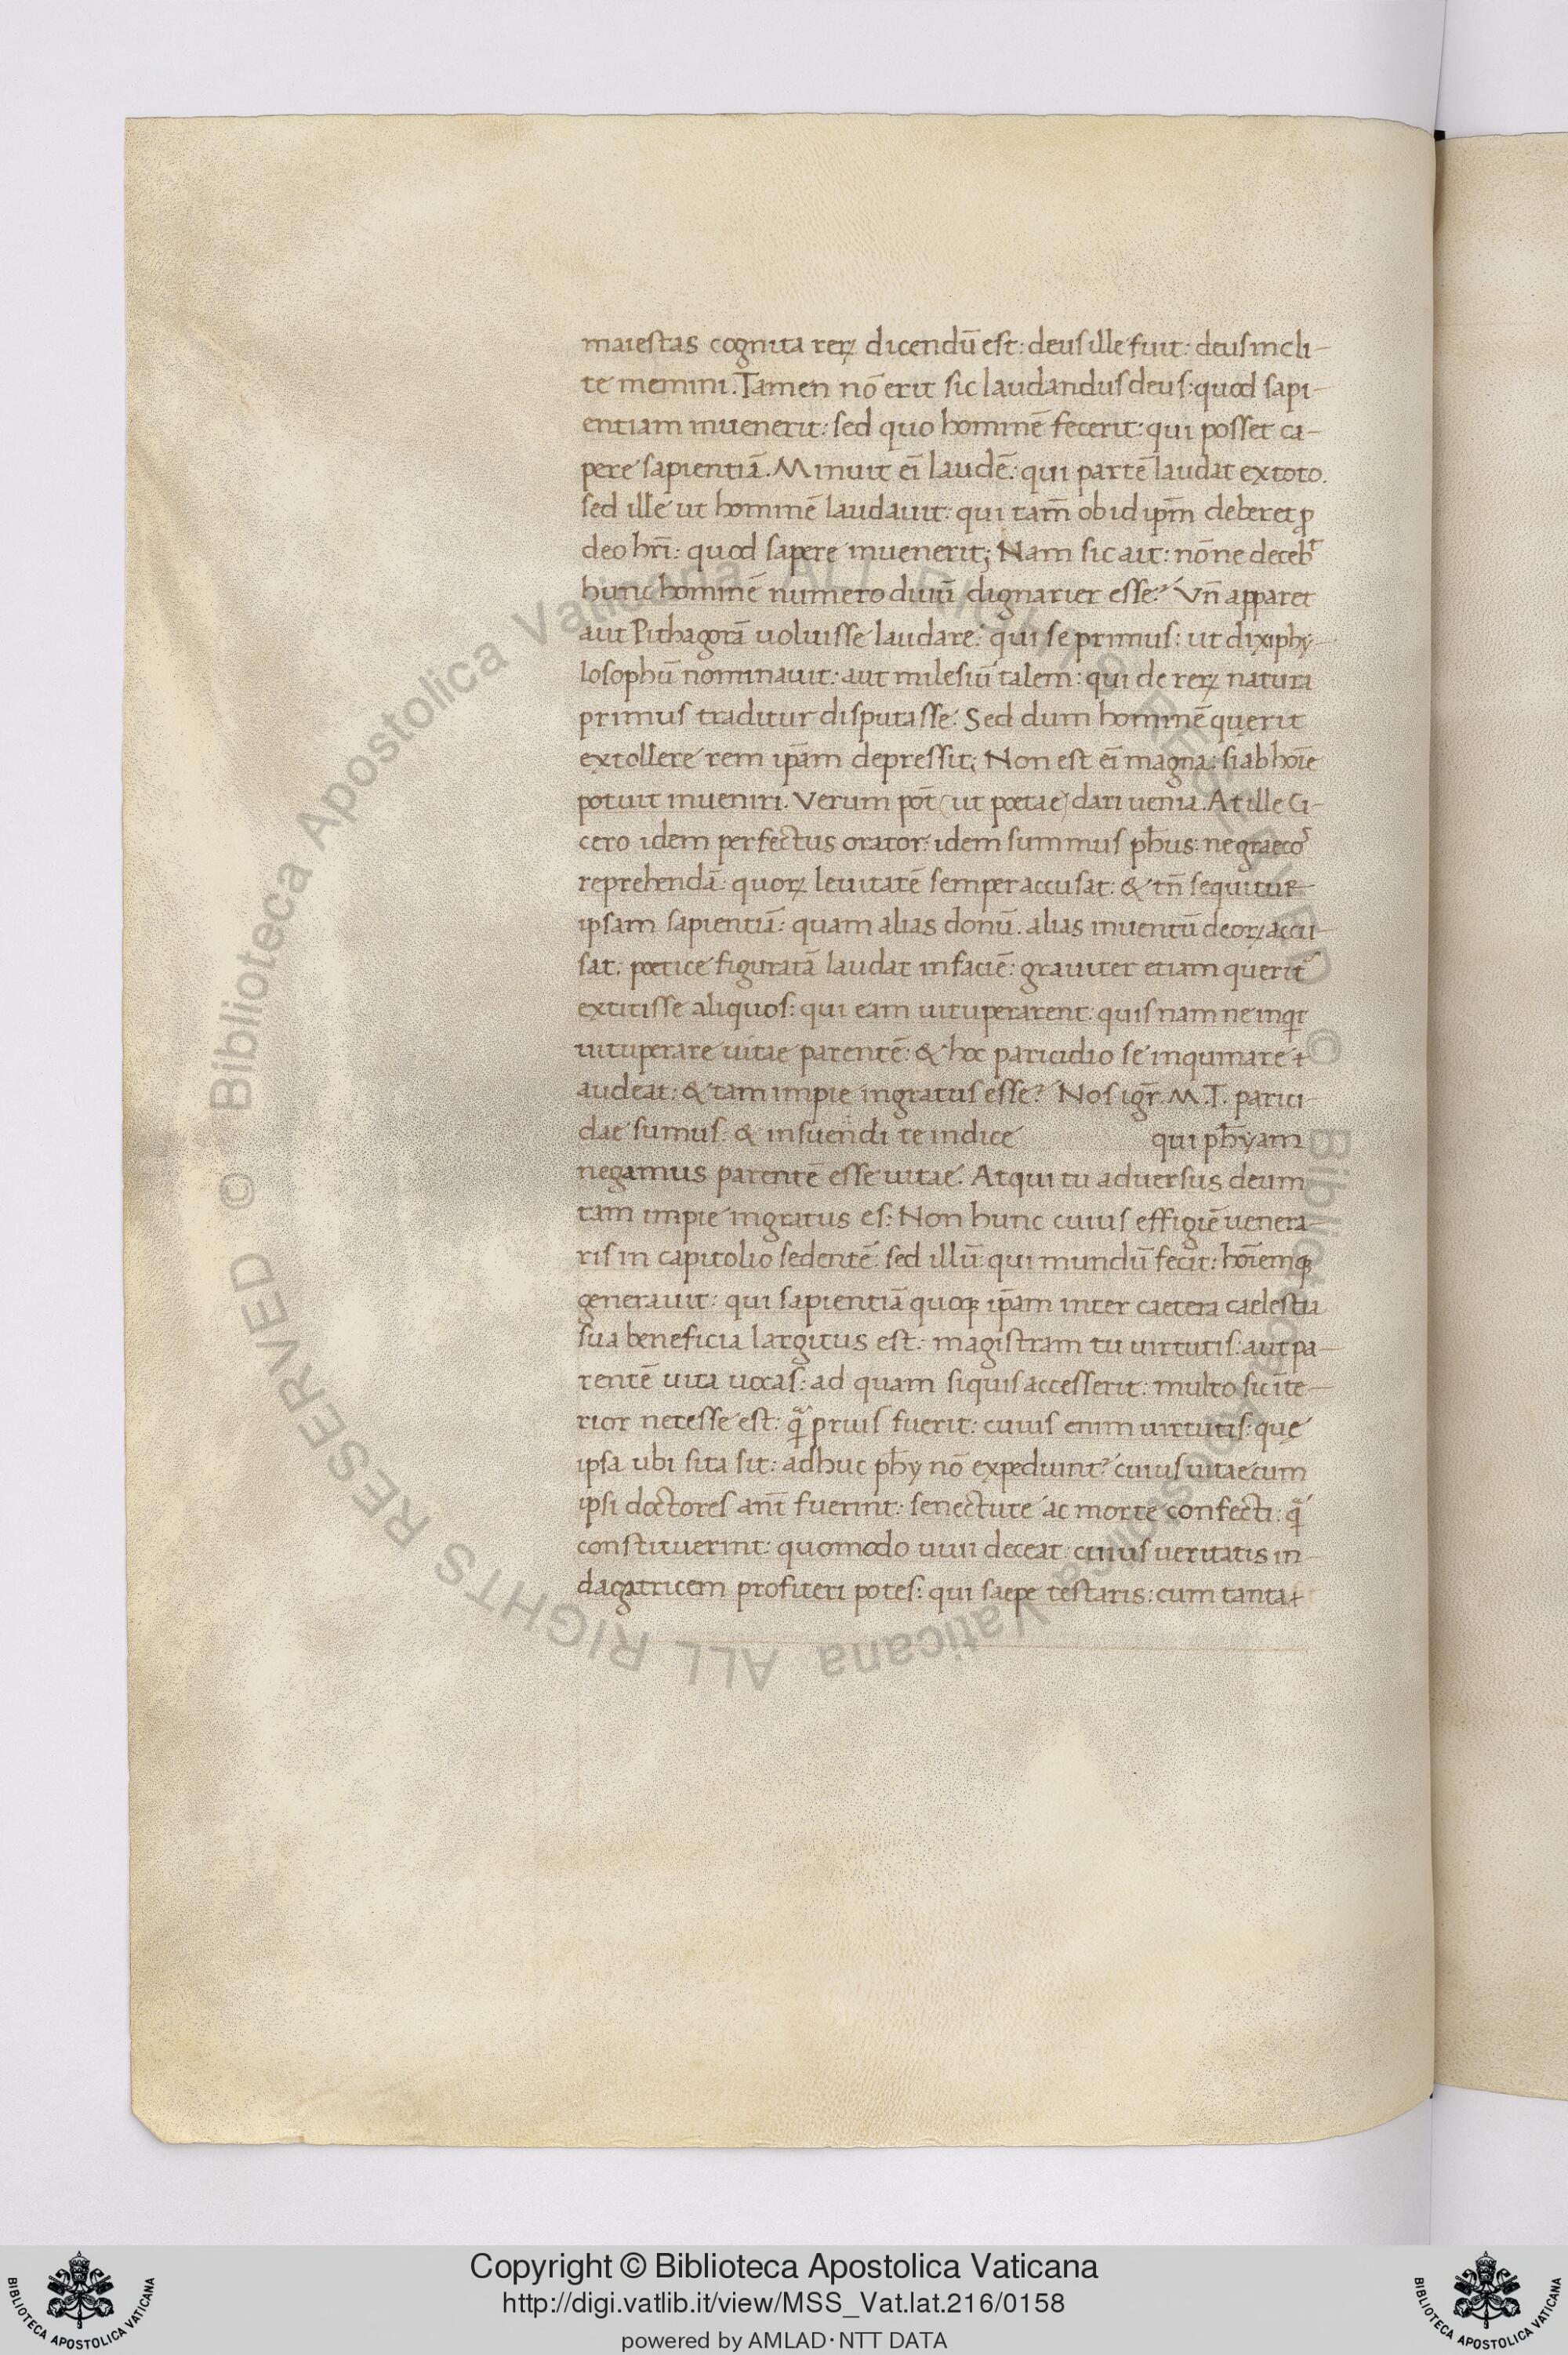 maiestas cognita rerꝝ dicendū est: deus ille fuit: deus incli-
te memini. Tamen nō erit sic laudandus deus: quod sapi-
entiam inuenerit: sed quo hominē fecerit: qui posset ca-
pere sapientiā. Minuit eī laudē: qui partē laudat ex toto.
sed ille ut hominē laudauit: qui tam̄ ob id ip̄m deberet ꝓ
deo hr̄i: quod sapere inuenerit; Nam sic ait: nōne deceb&
hunc hominē numero diuū dignarier esse? Vn̄ apparet
aut Pithagorā uoluisse laudare: qui se primus: ut dixi phy-
losophū nominauit: aut milesiū talem: qui de rerꝝ natura
primus traditur disputasse: Sed dum hominē querit
extollere rem ip̄am depressit; Non est eī magna: si ab hoīe
potuit inueniri. Verum pot̄ (ut poetae) dari uenia. At ille Ci-
cero idem perfectus orator: idem summus ph̄us: ne graecos
reprehendā: quorꝝ leuitatē semper accusat: & tn̄ sequitur
ipsam sapientiā: quam alias donū. alias inuentū deorꝝ accu-
sat: poetice figuratā laudat in faciē: grauiter etiam querit~
extitisse aliquos: qui eam uituperarent: quis nam ne inqͥt
uituperare uitae parentē: & hoc paricidio se inquinare
audeat: & tam impie ingratus esse? Nos igr̄ M.T. parici-
dae sumus: & insuendi te iudice qui ph̄yam
negamus parentē esse uitae. Atqui tu aduersus deum
tam impie ingratus es: Non hunc cuius effigiē uenera-
ris in capitolio sedentē: sed illū: qui mundū fecit: hoīemq;
generauit: qui sapientiā quoq; ip̄am inter caetera caelestia
sua beneficia largitus est: magistram tu uirtutis: aut pa-
rentē uita uocas: ad quam siquis accesserit: multo sic īte-
rior necesse est: qͣ̄ prius fuerit: cuius enim uirtutis: quę
ipsa ubi sita sit: adhuc ph̄y nō expediunt? cuius uitae cum
ipsi doctores ant̄ fuerint: senectute ac morte confecti: qͣ̄
constituerint: quomodo uiui deceat: cuius ueritatis in-
dagatricem profiteri potes: qui saepe testaris: cum tanta
Copyright © Biblioteca Apostolica Vaticana
http://digi.vatlib.it/view/MSS_Vat.lat.216/0158
powered by AMLAD·NTT DATA